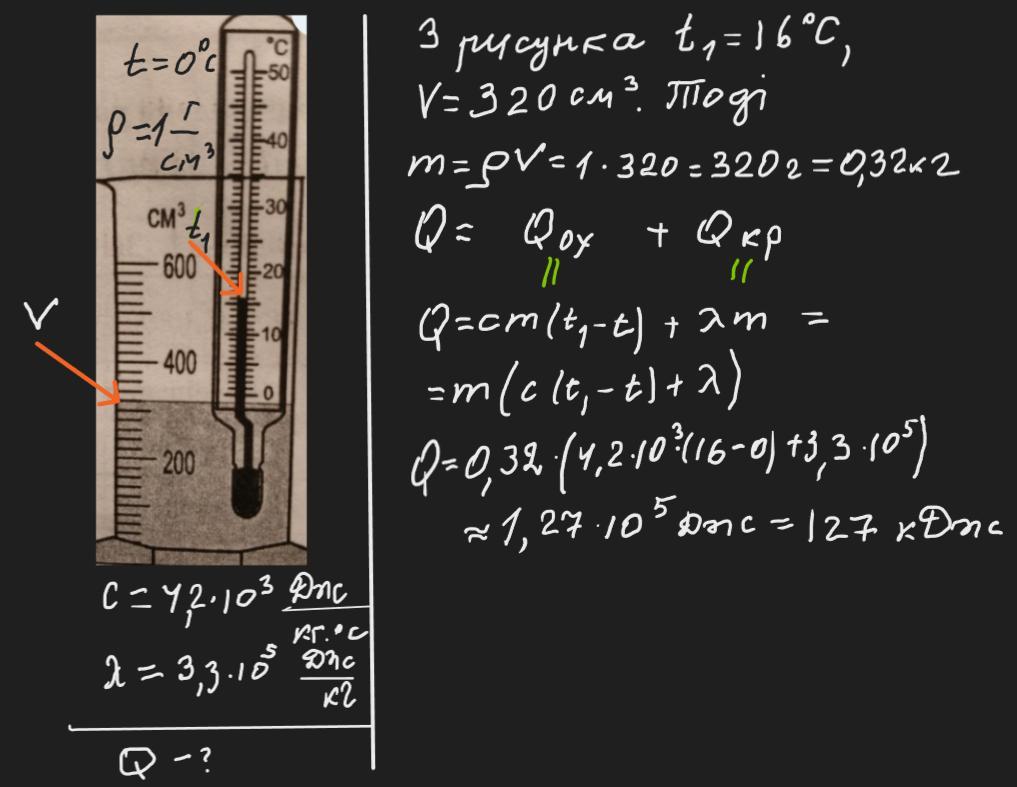 t=0°C
ρ=1 г/см³
°C
50
40
30
20
10
0
СМ³ t₁
600
400
200
V
c=4,2·10³ Дж/кг·°C
λ=3,3·10⁵ Дж/кг
Q-?
З рисунка t₁=16°C,
V=320 см³. Тоді
m=ρV=1·320=320г=0,32кг
Q= Qох + Qкр
Q=cm(t₁-t)+λm =
=m(c(t₁-t)+λ)
Q=0,32·(4,2·10³·(16-0)+3,3·10⁵)
≈1,27·10⁵ Дж=127 кДж